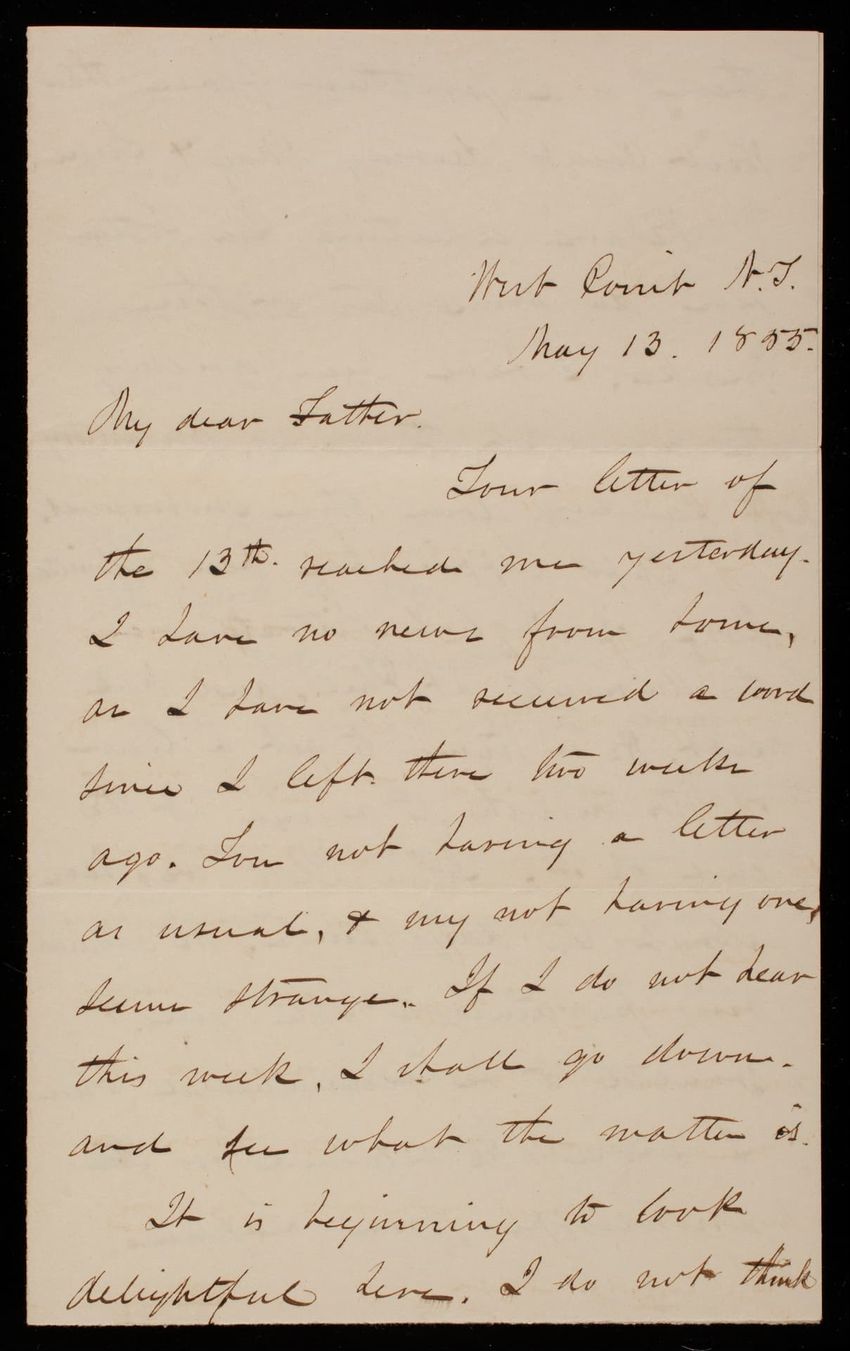 West Point N.Y.
May 13. 1855.
My dear Father.
Your letter of
the 13th. reached me yesterday.
I have no news from home,
as I have not received a word
since I left there two weeks
ago. You not having a letter
as usual, & my not having one,
seems strange. If I do not hear
this week, I shall go down.
and see what the matter is.
It is beginning to look
delightful here. I do not think